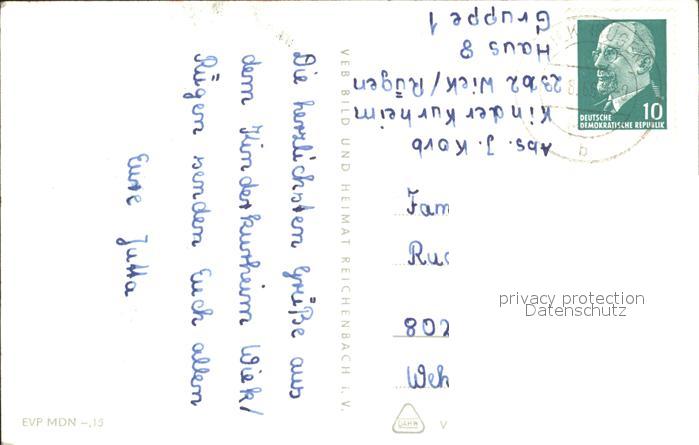 Die herzlichsten Grüße aus
dem Kinderkurheim Wiek/
Rügen senden Euch allen
Eure Jutta
VEB BILD UND HEIMAT REICHENBACH i. V.
Abs. J. Korb
Kinderkurheim
2362 Wiek/Rügen
Haus 8
Gruppe 1
10
DEUTSCHE
DEMOKRATISCHE REPUBLIK
b
Fam
Ruc
802
Weh
privacy protection
Datenschutz
EVP MDN -,15
V